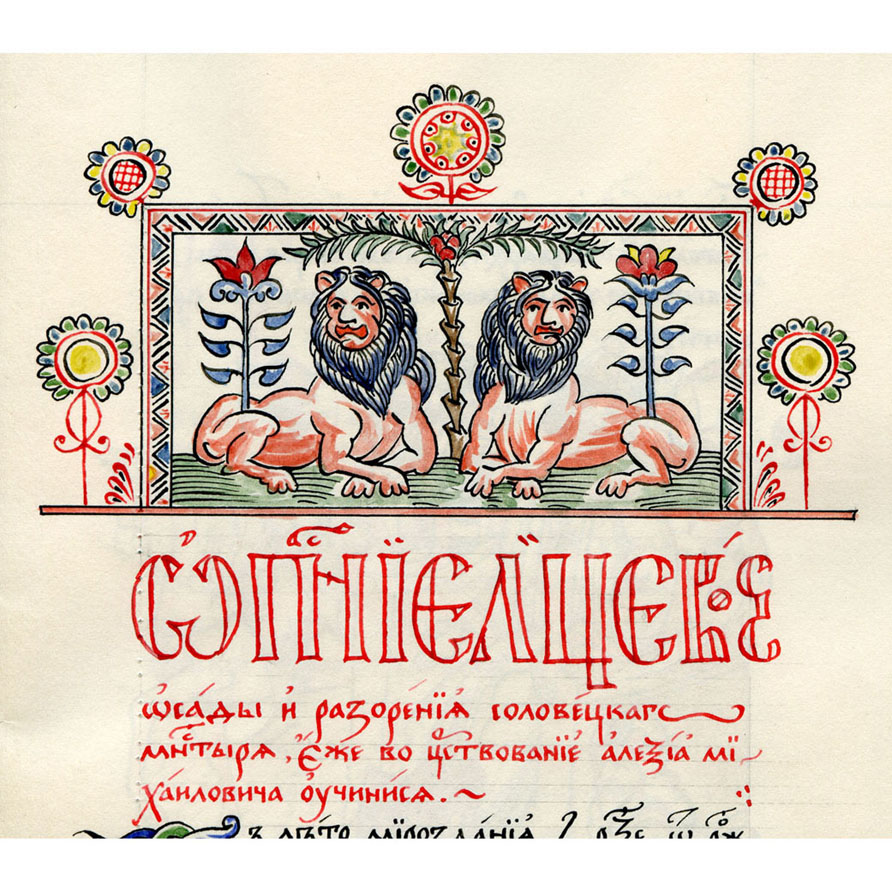 Ѡпⷭ҇нїе лїцевое
ѡ҆са́ды и҆ разоре́нїѧ солове́цкагѡ
мнⷭ҇тырѧ, є҆́же во цⷭ҇твованїе а҆леѯі́а мї
ха́иловича ѹ҆чинисѧ.
лѣто мїрозданїѧ